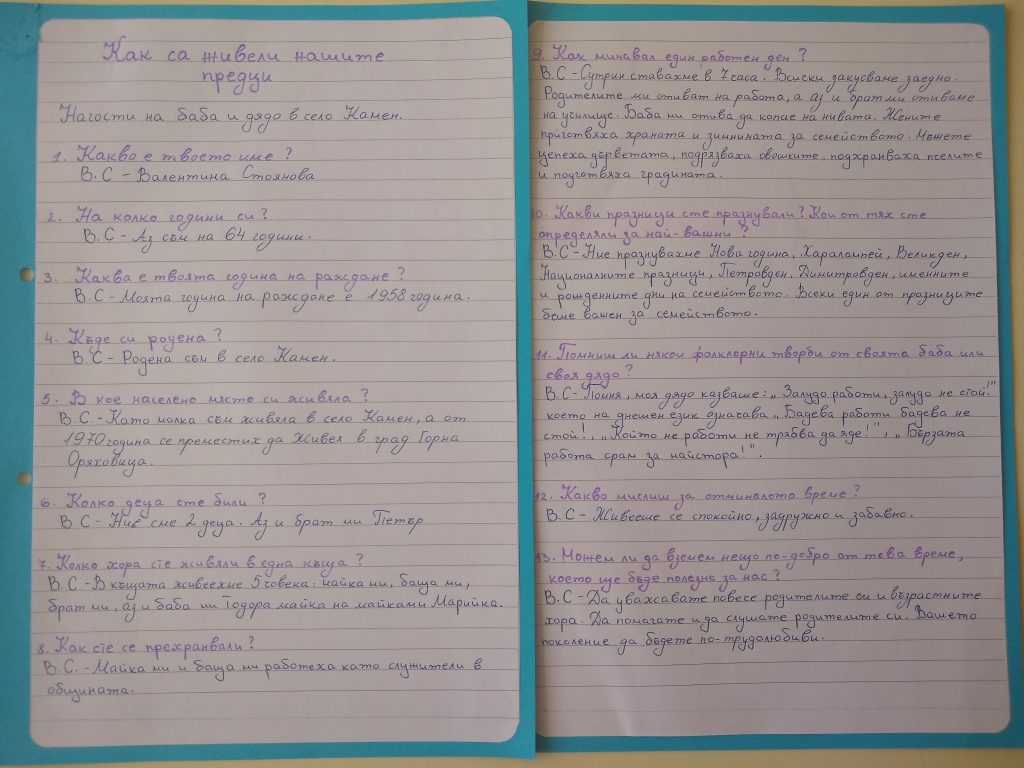 Как са живели нашите
предци
Нагости на баба и дядо в село Камен.
1. Какво е твоето име?
В.С - Валентина Стоянова
2. На колко години си?
В.С - Аз съм на 64 години.
3. Каква е твоята година на раждане?
В.С - Моята година на раждане е 1958 година.
4. Къде си родена?
В.С - Родена съм в село Камен.
5. В кое населено място си живяла?
В.С.- Като малка съм живяла в село Камен, а от
1970 година се преместих да живея в град Горна
Оряховица.
6. Колко деца сте били?
В.С - Ние сме 2 деца. Аз и брат ми Петър
7. Колко хора сте живяли в една къща?
В.С.- В къщата живеехме 5 човека: майка ми, баща ми,
брат ми, аз и баба ми Тодора майка на майка ми Марийка.
8. Как сте се прехранвали?
В.С. - Майка ми и баща ми работеха като служители в
общината.
9. Как минавал един работен ден?
В.С - Сутрин ставахме в 7 часа. Всиски закусваме заедно.
Родителите ми отиват на работа, а аз и брат ми отиваме
на училище. Баба ми отива да копае на нивата. Жените
приготвяха храната и зимнината за семейството. Мъжете
цепеха дърветата, подрязваха овошките, подхранваха пчелите
и подготвяха градината.
10. Какви празници сте празнували? Кои от тях сте
определяли за най-важни?
В.С - Ние празнувахме Нова година, Харалампей, Великден,
Националните празници, Петровден, Димитровден, имениите
и рожденните дни на семейството. Всеки един от празниците
беше важен за семейството.
11. Помниш ли някои фолклорни творби от своята баба или
своя дядо?
В.С - Помня, моя дядо казваше: „Залудо работи, залудо не стой!"
което на днешен език означава „Бадева работи бадева не
стой!, „Който не работи не трябва да яде!", „Бързата
работа срам за майстора!".
12. Какво мислиш за отминалото време?
В.С - Живееше се спокойно, задружно и забавно.
13. Можем ли да вземем нещо по-добро от това време,
което ще бъде полезно за нас?
В.С - Да уважавате повече родителите си и възрастните
хора. Да помагате и да слушате родителите си. Вашето
поколение да бъдете по-трудолюбиви.